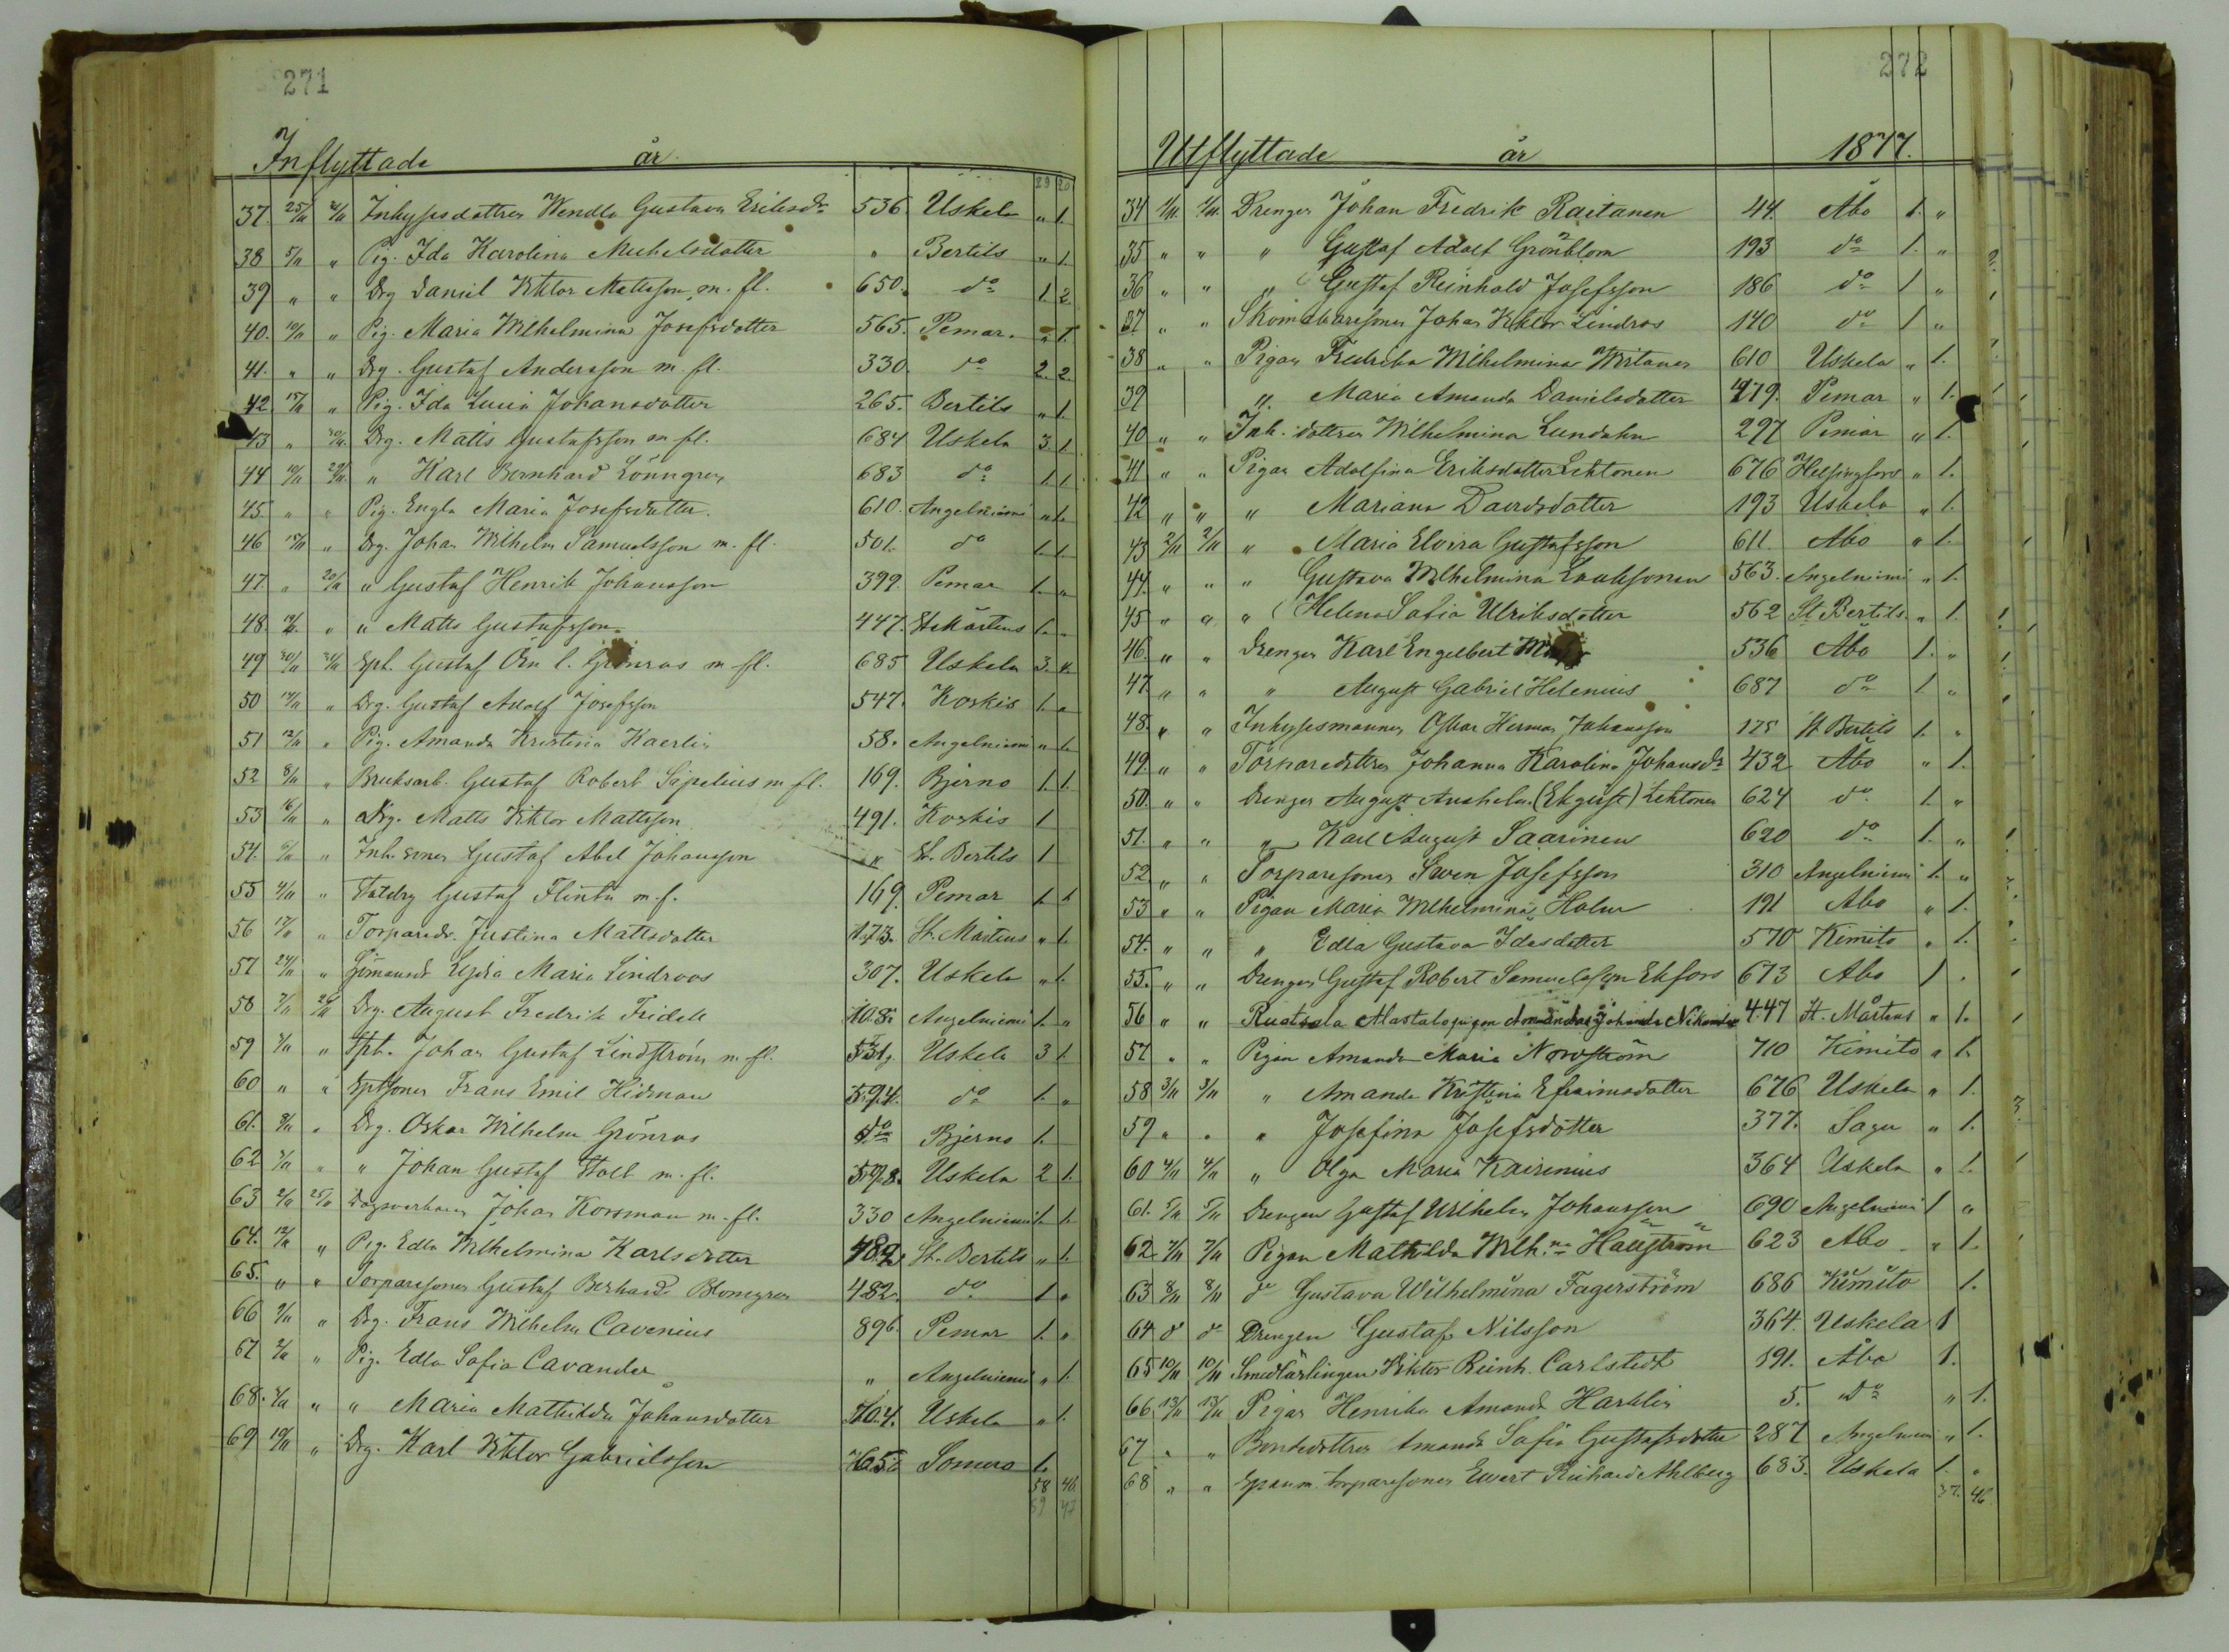 271
Inflyttade år
29 20
37. 25/11 Inhysesdottren Wendla Gustava Eriksdr 536 Uskela " 1.
38 5/11 " Pig. Ida Karolina Michelsdotter " Bertils " 1.
39 " " Drg Daniel Viktor Mattsson m. fl. 650. do 1. 2
40. 10/11 " Pig. Maria Wilhelmina Josefsdotter 565. Pemar. " 1.
41. " " Drg. Gustaf Andersson m. fl. 330. do 2. 2.
42 15/11 " Pig. Ida Lucia Johansdotter 265. Bertils " 1.
43 " Drg. Matts Gustafsson m fl. 684 Uskela 3 1.
44 " Karl Bernhard Lönngren 683 do 1. 1.
45. " " Pig. Engla Maria Josefsdotter. 610. Angelniemi " 1.
46 15/11 " Drg. Johan Wilhelm Samuelsson m. fl. 501. do 1. 1.
47. " 20/11 " Gustaf Henrik Johansson 399. Pemar 1. "
48. " " Matts Gustafsson 447. St Mårtens 1. "
49 Spt. Gustaf Örn l. Grönroos m fl. 685 Uskela 3. 4.
50 17/11 " Drg. Gustaf Adolf Josefsson 547. Koskis 1. "
51 12/11 " Pig. Amanda Kristina Kaerlin 58. Angelniemi " 1.
52 8/11 " Bruksarb. Gustaf Robert Sipelius m fl. 169. Bjerno 1. 1.
53 16/11 " Drg. Matts Viktor Mattsson 491. Koskis 1
54. " Inh. sonen Gustaf Abel Johansson " St. Bertils 1
55 " Statdrg Gustaf Flinta m. f. 169. Pemar 1. 1.
56 17/11 " Torpareds. Justina Mattsdotter 173. St. Mårtens " 1.
57 24/11 " Lydia Maria Lindroos 307. Uskela " 1.
58 Drg. August Fredrik Fridell 108. Angelniemi 1. "
59 " Spt. Johan Gustaf Lindström m. fl. 531. Uskela 3 1.
60 " " Sptsonen Frans Emil Hidman 594. do 1. "
61. " Drg. Oskar Wilhelm Grönroos do Bjerno 1.
62 " " Johan Gustaf Stolt m. fl. 598. Uskela 2 1.
63 25/11 Dagsverkaren Johan Korsman m. fl. 330 Angelniemi 1. 1.
64. 12/11 " Pig. Edla Wilhelmina Karlsdotter 482. St. Bertils " 1.
65. " " Torparesonen Gustaf Berhard Blomgren 482. do 1 "
66 " Drg. Frans Wilhelm Cavenius 896. Pemar 1. "
67 " Pig. Edla Sofia Cavander " Angelniemi " 1.
68. " " Maria Mathilda Johansdotter 404. Uskela " 1.
69 19/11 " Drg. Karl Viktor Gabrielsson Somero 1.
58 46
59 47
272
Utflyttade år 1877.
34 1/11 1/11 Drengen Johan Fredrik Raitanen 44. Åbo 1. "
35 " " " Gustaf Adolf Grönblom 193 do 1. "
36 " " " Gustaf Reinhold Josefsson 186 do 1 "
37 " " Skomakaresonen Johan Viktor Lindros 140 do 1 "
38 " " Pigan Fredrika Wilhelmina Wirtanen 610 Uskela " 1.
39 " Maria Amanda Danielsdotter 479. Pemar " 1.
40 " " Inh. dottren Wilhelmina Lundahn 297 Pemar " 1.
41 " " Pigan Adolfina Eriksdotter Lehtonen 676 Helsingfors " 1.
42 " " " Mariana Davidsdotter 193 Uskela " 1.
43 2/11 2/11 " Maria Elvira Gustafsson 611. Åbo " 1.
44. " " " Gustava Wilhelmina Laaksonen 563. Angelniemi " 1.
45 " " " Helena Sofia Ulriksdotter 562 St Bertils. " 1.
46. " " Drengen Karl Engelbert 536 Åbo 1. "
47 " " " August Gabriel Helenius 687 do 1 "
48. " " Inhysesmannen Oskar Herman Johansson 175 St Bertils 1. "
49. " " Torparedottren Johanna Karolina Johansdr 432 Åbo " 1.
50. " " Drengen August Anshelm (Ekqvist) Lehtonen 624 do 1. "
51. " " " Karl August Saarinen 620 do 1. "
52 " " Torparesonen Swen Josefsson 310 Angelniemi 1. "
53 " " Pigan Maria Wilhelmina Holm 191 Åbo " 1.
54. " " " Edla Gustava Idasdotter 570 Kimito " 1.
55. " " Drengen Gustaf Robert Samuelsson Ekfors 673 Åbo 1 "
56 " " Rustala Mastalo pigan Amanda Johanna Nikander 447 St. Mårtens " 1.
57 " " Pigan Amanda Maria Nordström 710 Kimito " 1.
58 3/11 3/11 " Amanda Kristina Efraimsdotter 676 Uskela " 1.
59 " " " Josefina Josefsdotter 377. Sagu " 1.
60 4/11 4/11 " Olga Maria Kairenius 364 Uskela " 1.
61. 5/11 5/11 Drengen Gustaf Wilhelm Johansson 690 Angelniemi 1 "
62. 7/11 7/11 Pigan Mathilda Wilh:na Hällström 623 Åbo " 1.
63 8/11 8/11 do Gustava Wilhelmina Fagerström 686 Kimito 1.
64 do do Drengen Gustaf Nilsson 364. Uskela 1
65 10/11 10/11 Smedlärlingen Viktor Reinh. Carlstedt 591. Åbo 1.
66 13/11 13/11 Pigan Henrika Amanda Harklin 5. do " 1.
67 " " Bondedottren Amanda Sofia Gustafsdotter 287 Angelniemi " 1.
68 " " torparesonen Ewert Richard Ahlberg 683. Uskela 1. "
37. 46